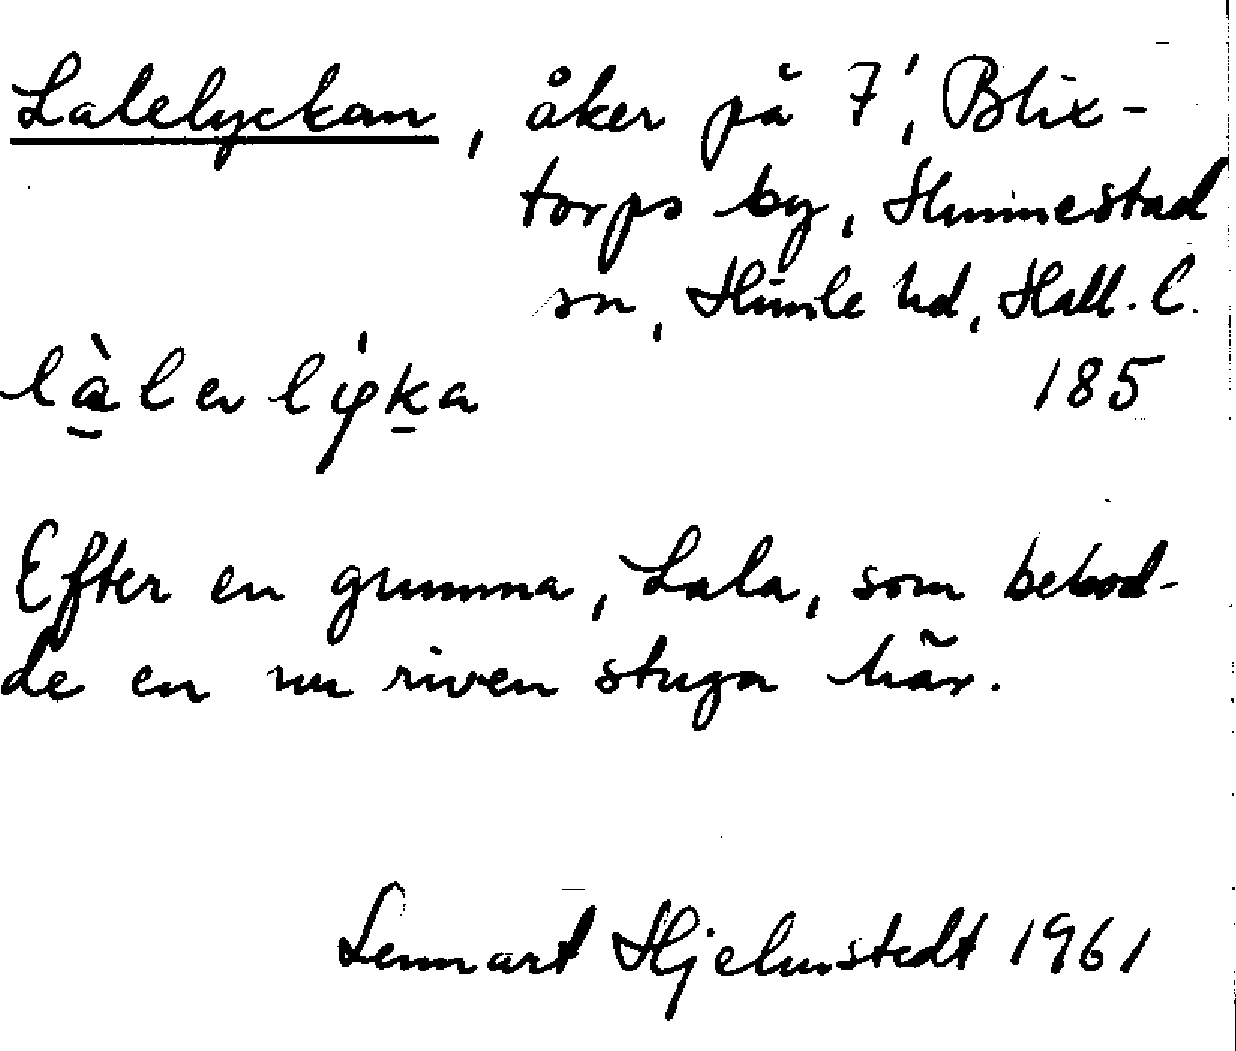 Lalelyckan, åker på 7', Blix-
torps by, Hunnestad
sn, Himle hd, Hall. l.
185
Efter en gumma, Lala, som bebod-
de en nu riven stuga här.
Lennart Hjelmstedt 1961